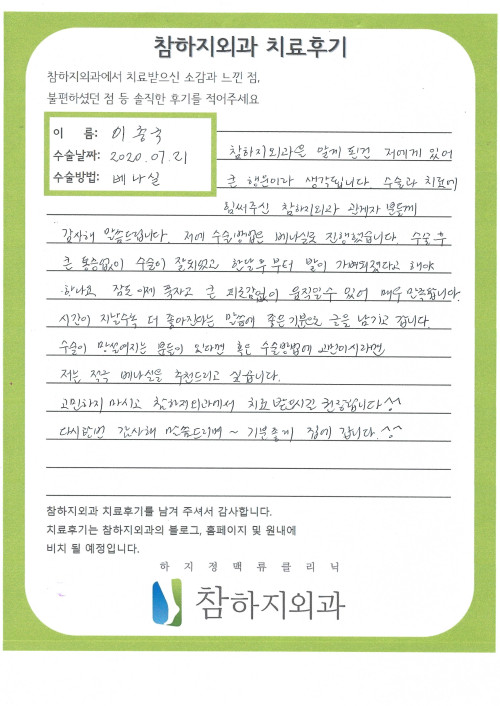 참하지외과 치료후기
참하지외과에서 치료받으신 소감과 느낀 점,
불편하셨던 점 등 솔직한 후기를 적어주세요
이 름: 이종국
수술날짜: 2020.07.21
수술방법: 베나실
참하지외과를 알게 된건 저에게 있어
큰 행운이라 생각됩니다. 수술과 치료에
힘써주신 참하지외과 관계자 분들께
감사해 말씀드립니다. 저에 수술방법은 베나실로 진행했습니다. 수술 후
큰 통증없이 수술이 잘되었고 한달후 부터 발이 가벼워졌다고 해야
하나요 잠도 이제 푹자고 큰 피로감없이 움직일수 있어 매우 만족됩니다.
시간이 지날수록 더 좋아진다는 말씀에 좋은 기분으로 글을 남기고 갑니다.
수술이 망설여지는 분들이 있다면 혹은 수술방법에 고민이시라면
저는 적극 베나실을 추천드리고 싶습니다.
고민하지 마시고 참하지외과에서 치료 받으시길 권장합니다 ^^
다시한번 감사해 말씀드리며 ~ 기분좋게 집에 갑니다.^^
참하지외과 치료후기를 남겨 주셔서 감사합니다.
치료후기는 참하지외과의 블로그, 홈페이지 및 원내에
비치 될 예정입니다.
하지정맥류클리닉
참하지외과